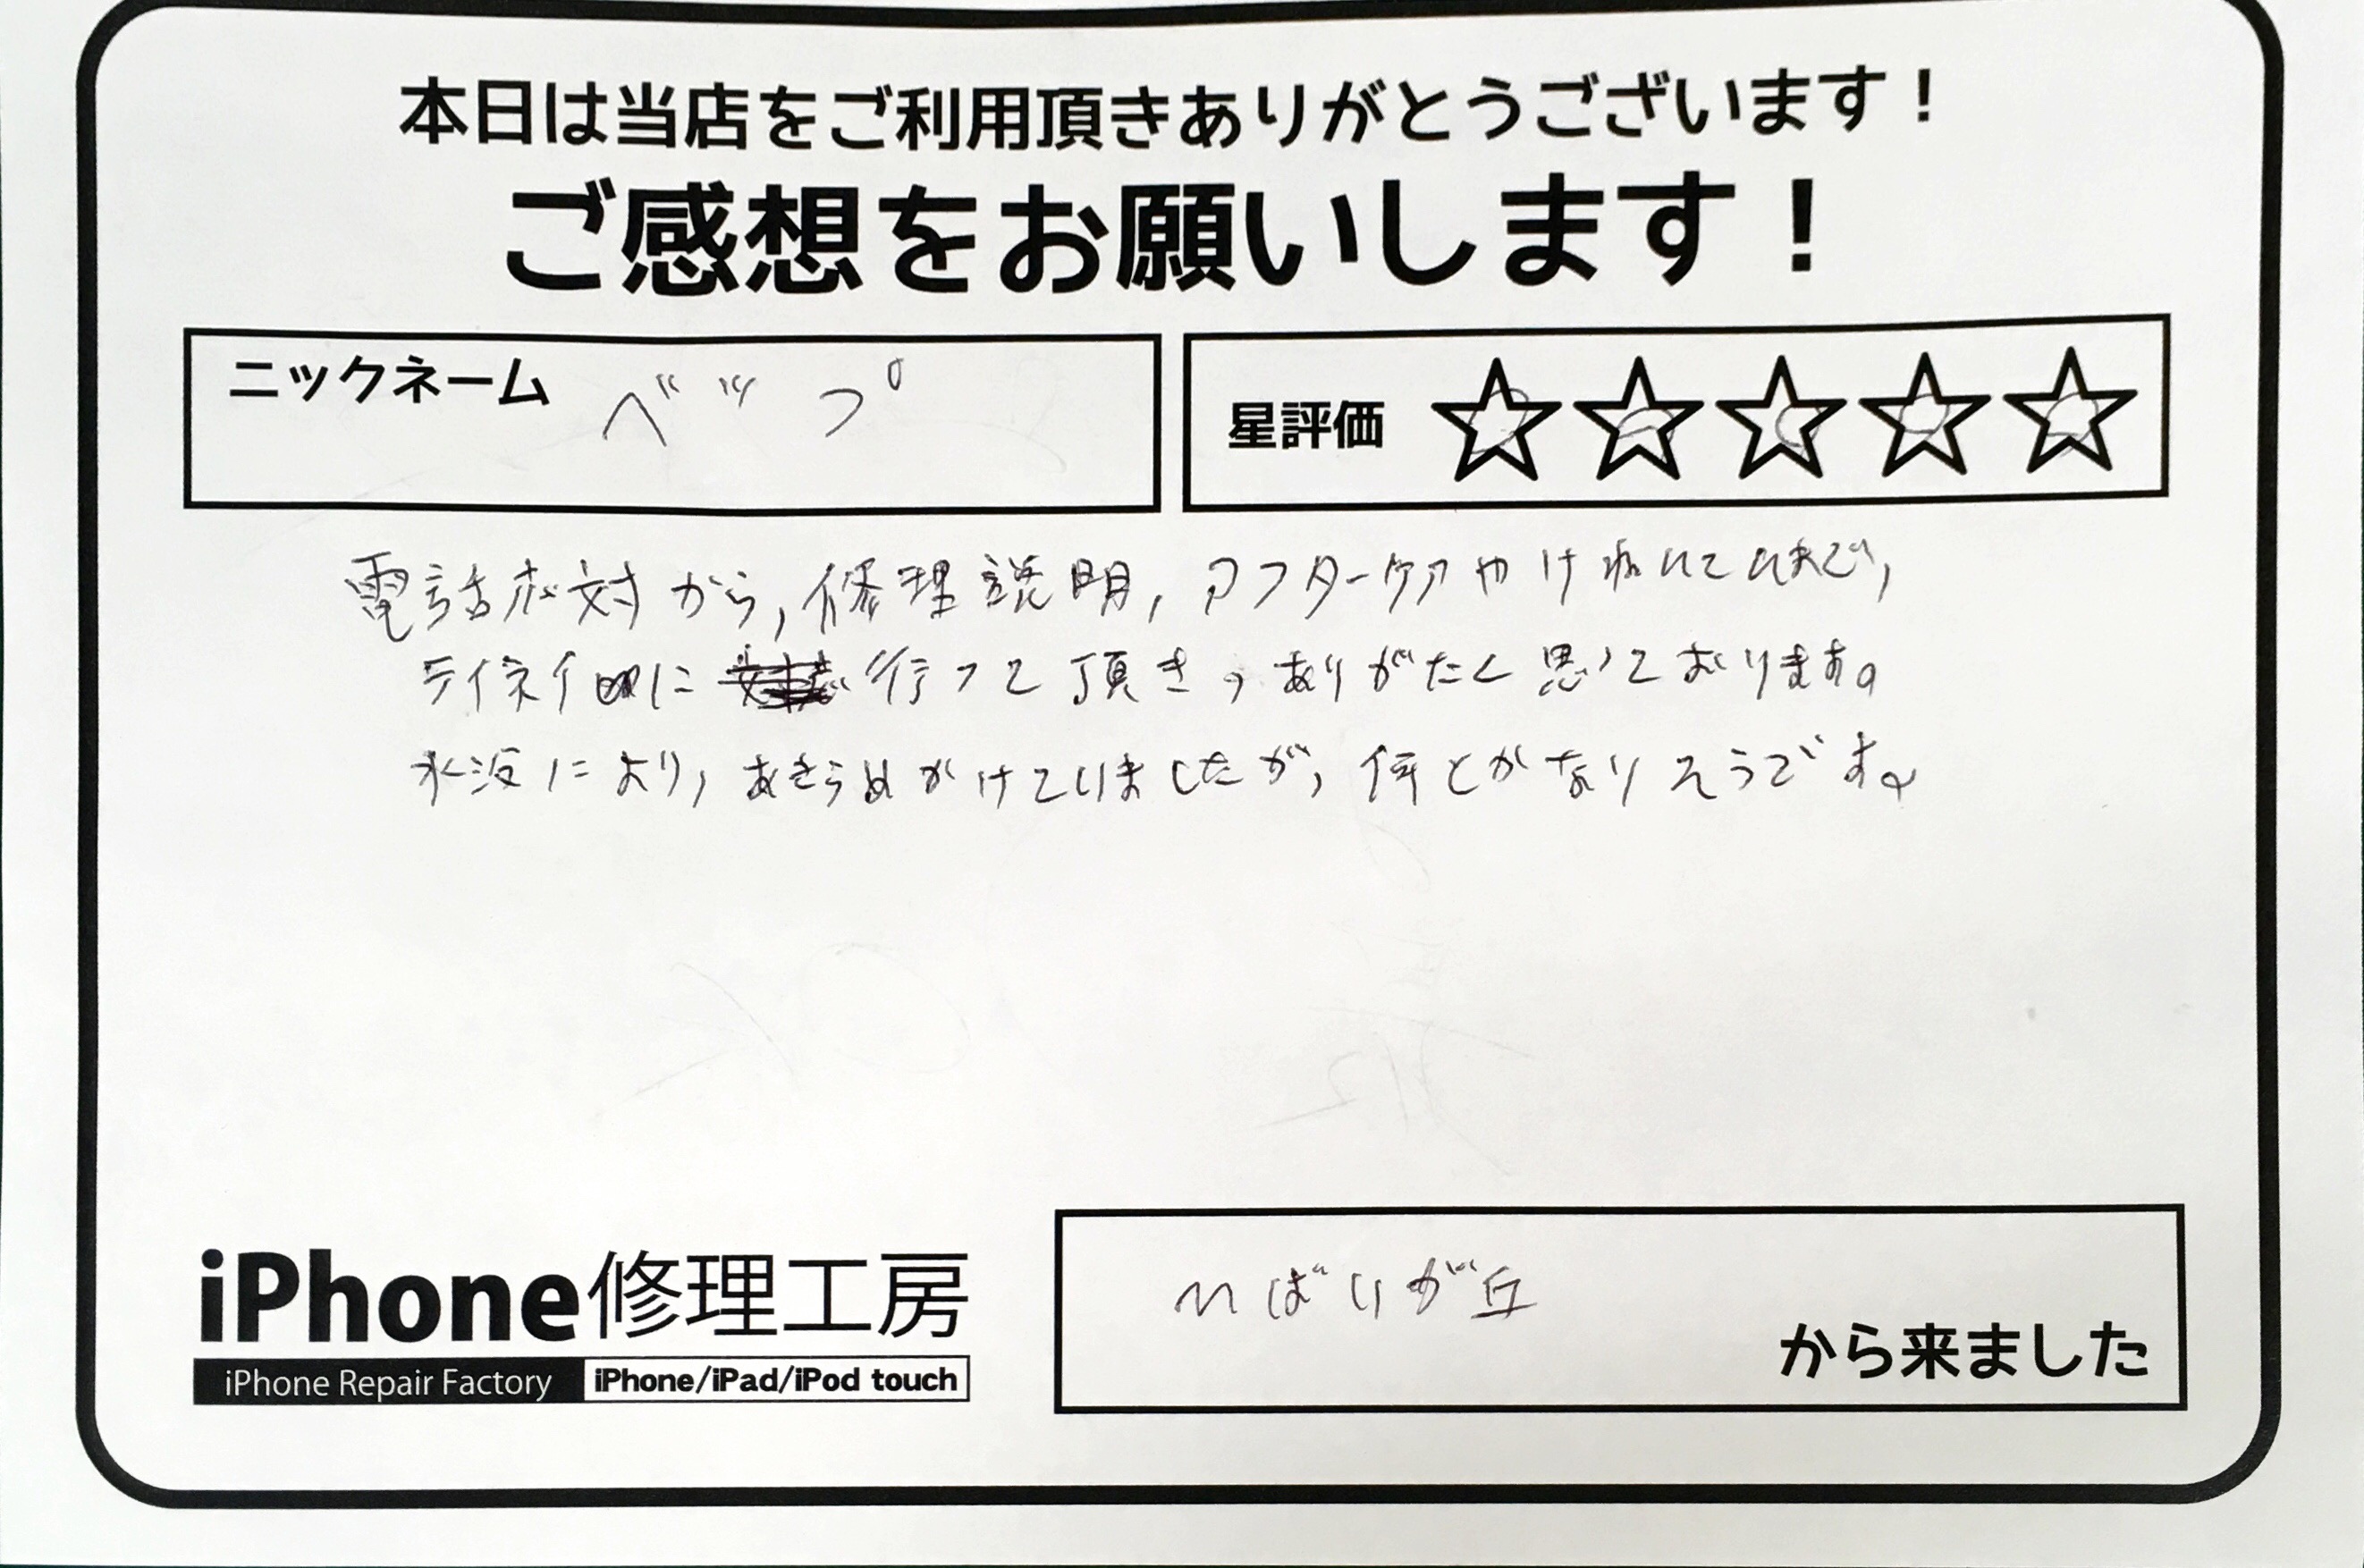 本日は当店をご利用頂きありがとうございます!
ご感想をお願いします!
ニックネーム ベップ
星評価 ☆☆☆☆☆
電話応対から,修理説明,アフターケアや
テイネイに行って頂き,ありがたく思っております。
水没により,あきらめかけていましたが,何とかなりそうです。
iPhone修理工房
iPhone Repair Factory iPhone/iPad/iPod touch
ひばりが丘
から来ました